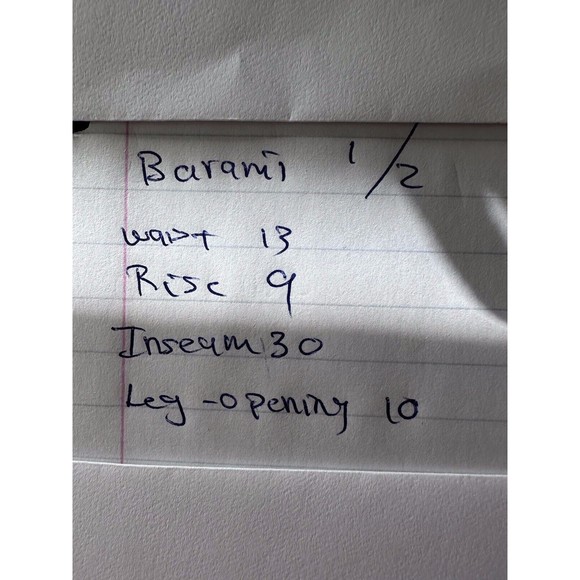 Barami 1/2
waist 13
Rise 9
Inseam 30
Leg-opening 10